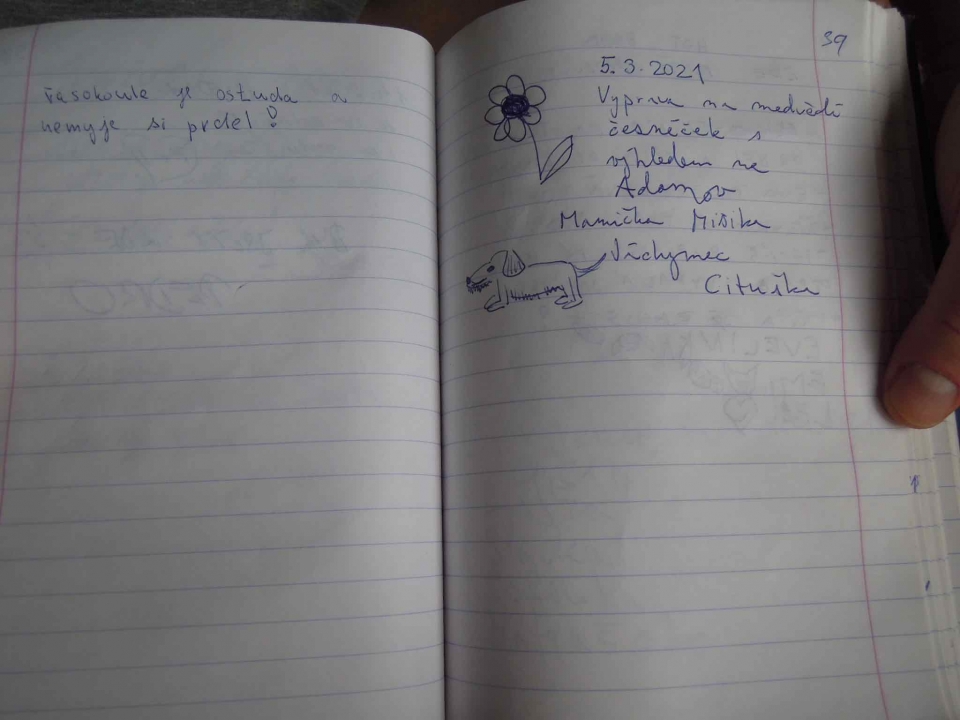 řasokoule je ostuda a
nemyje si prdel!
39
5.3.2021
Výprava na medvědí
česnéček s
výhledem na
Adamov
Mamička Mišika
Víchymec
Cituška